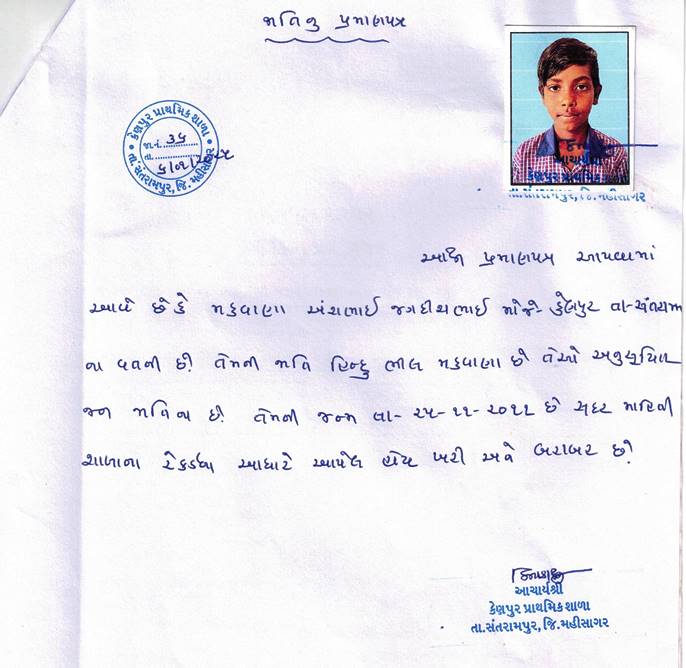 જાતિનુ પ્રમાણપત્ર
કેણપુર પ્રાથમિક શાળા
જા.નં. 36
તા.
તા.સંતરામપુર, જિ. મહીસાગર
આચાર્યશ્રી
કેણપુર પ્રાથમિક
તા.સંતરામપુર, જિ.મહીસાગર
આથી પ્રમાણપત્ર આપવામાં
આવે છે કે મકવાણા અંશભાઈ જગદીશભાઈ મોજે- કેણપુર તા-સંતરામ
ના વતની છે. તેમની જાતિ હિન્દુ ભીલ મકવાણા છે તેઓ અનુસૂચિત
જન જાતિના છે. તેમની જન્મ તા- ૨૫-૧૧-૨૦૧૧ છે સદર માહિતી
શાળાના રેકર્ડના આધારે આપેલ હોય ખરી અને બરાબર છે.
આચાર્યશ્રી
કેણપુર પ્રાથમિક શાળા
તા.સંતરામપુર, જિ.મહીસાગર